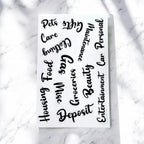 Pets
Care
Clothing
Gifts
Maintenance
Car
Personal
Housing
Food
Gas
Misc.
Groceries
Beauty
Deposit
Entertainment